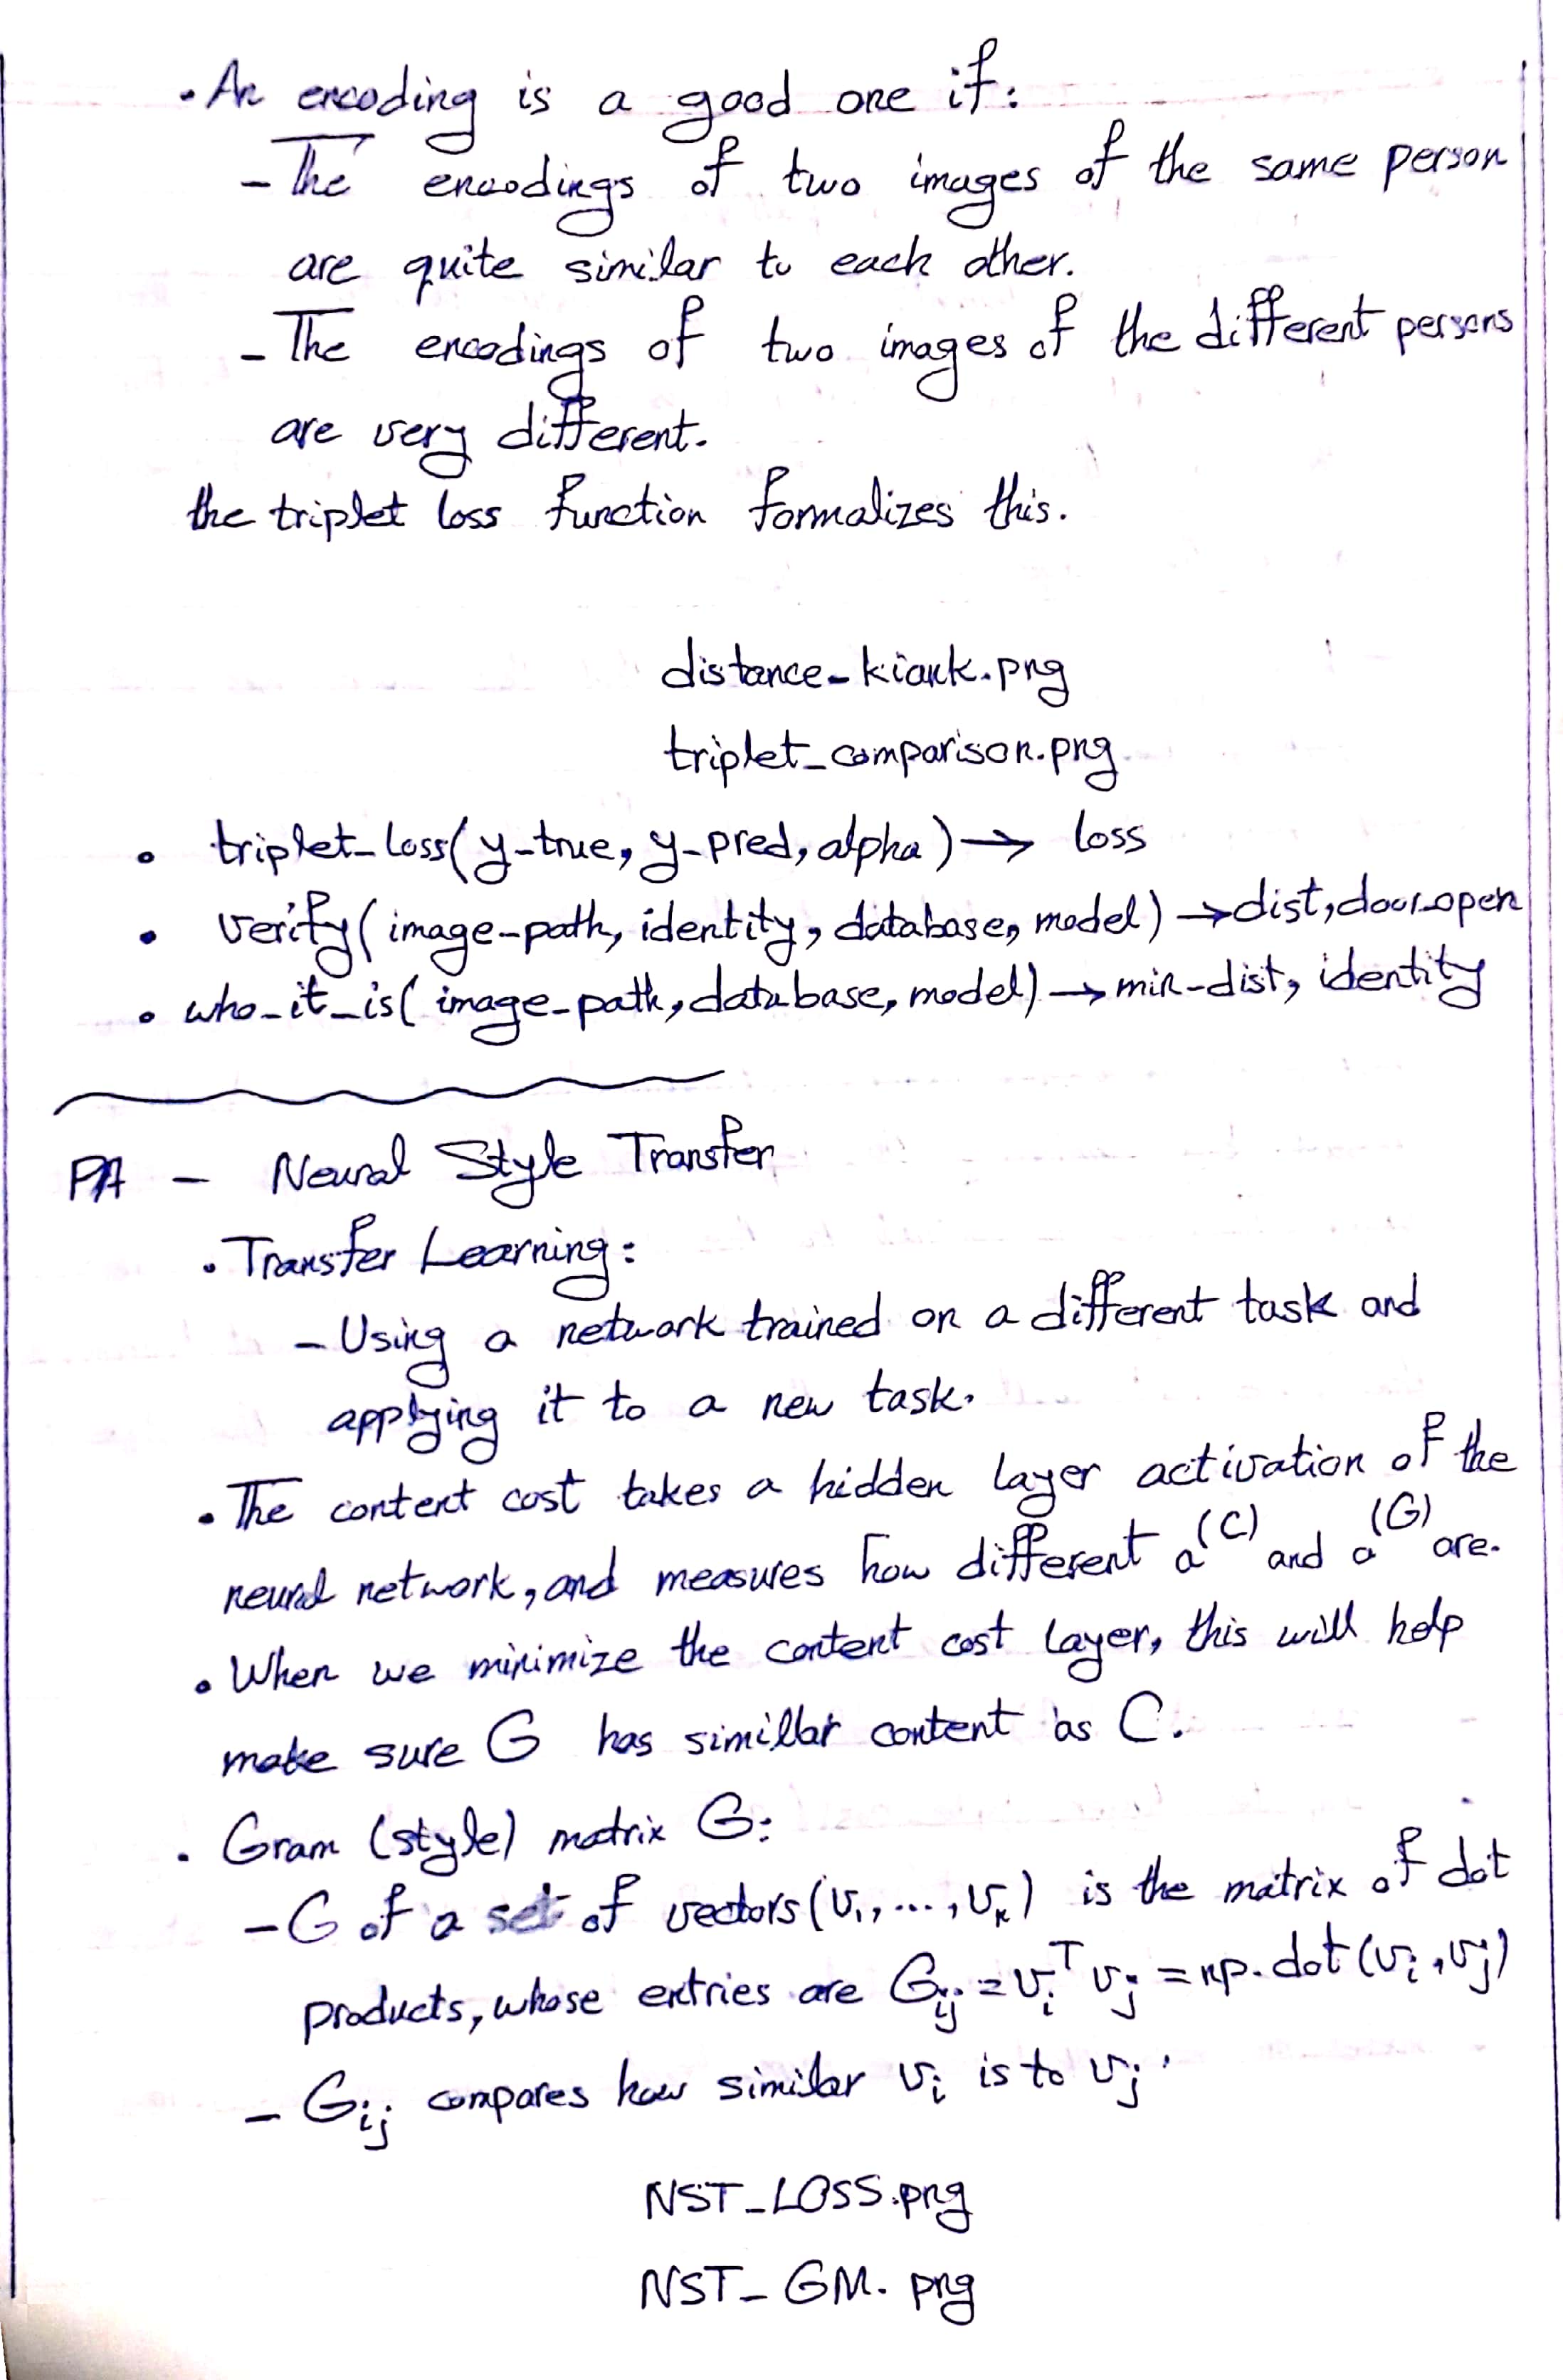 • An encoding is a good one if:
- The encodings of two images of the same person
are quite similar to each other.
- The encodings of two images of the different persons
are very different.
the triplet loss function formalizes this.
distance_kiank.png
triplet_comparison.png
• triplet_loss(y_true, y_pred, alpha) → loss
• verify(image_path, identity, database, model) → dist, door_open
• who_it_is(image_path, database, model) → min_dist, identity
PA - Neural Style Transfer
• Transfer Learning:
- Using a network trained on a different task and
applying it to a new task.
• The content cost takes a hidden layer activation of the
neural network, and measures how different a^(C) and a^(G) are.
• When we minimize the content cost layer, this will help
make sure G has simillar content as C.
• Gram (style) matrix G:
- G of a set of vectors (v₁, ..., vₙ) is the matrix of dot
products, whose entries are Gᵢⱼ = vᵢᵀ vⱼ = np.dot(vᵢ, vⱼ)
- Gᵢⱼ compares how similar vᵢ is to vⱼ.
NST_LOSS.png
NST_GM.png